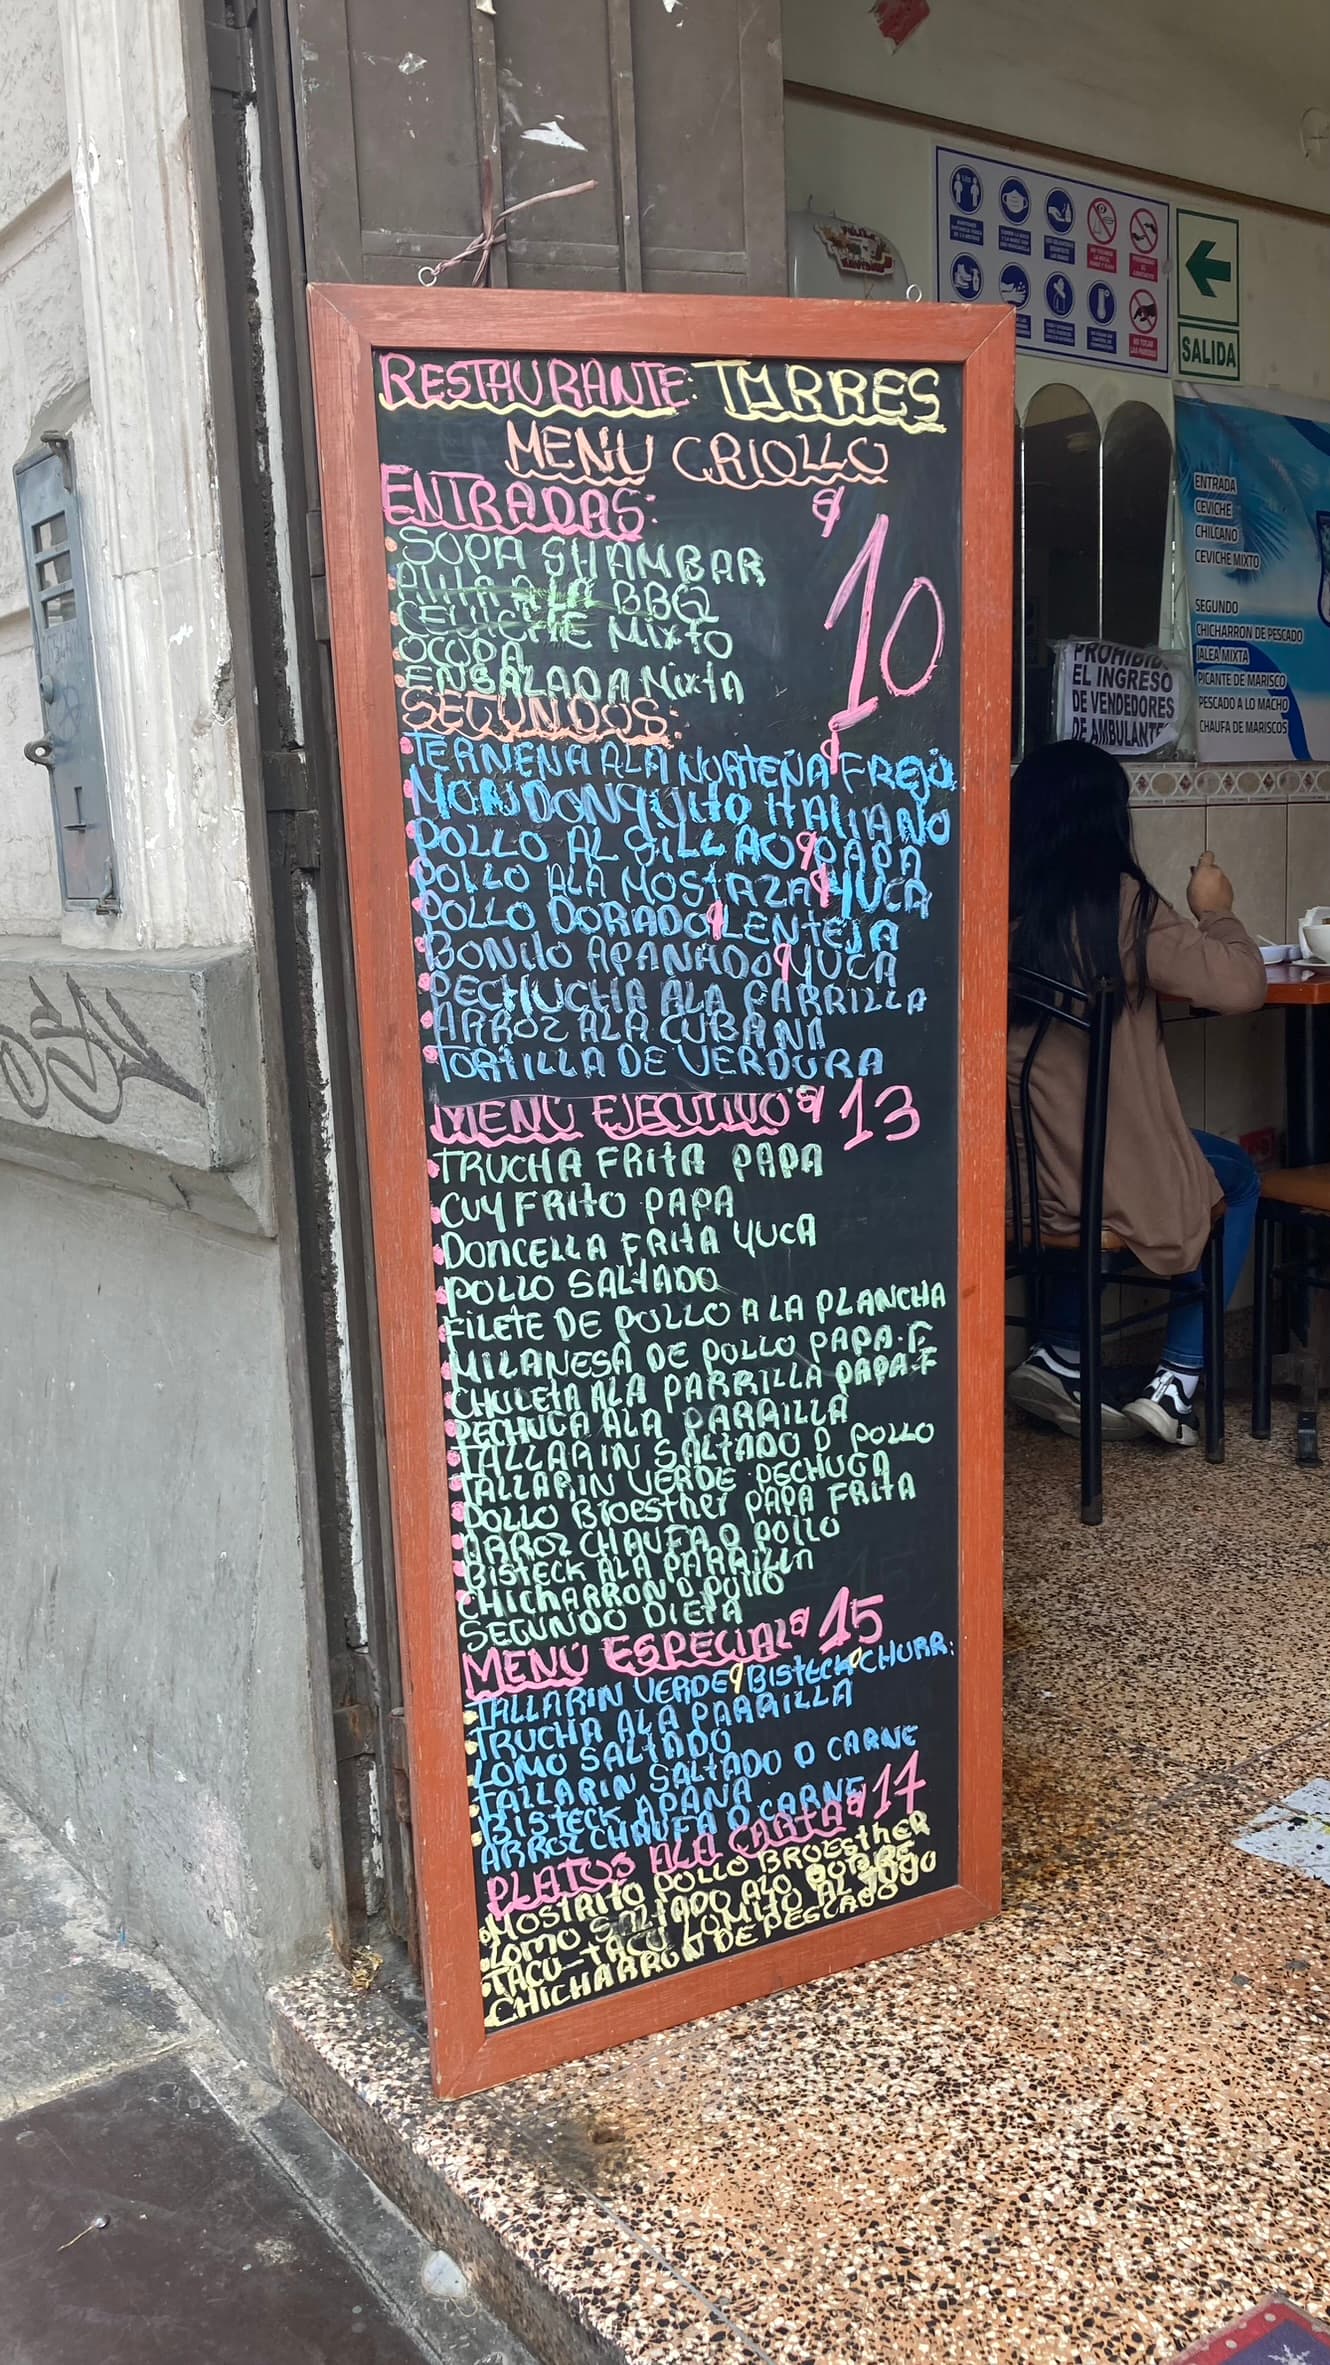 RESTAURANTE: TURRES
MENU CRIOLLO
ENTRADAS:
$ 10
SOPA SHAMBAR
ALITA A LA BBQ
CEVICHE MIXTO
OCOPA
ENSALADA MIXTA
SEGUNDOS:
TERNENA ALA NORTEÑA FREJO
MONDONGUITO ITALIANO
POLLO AL SILLAO PAPA
POLLO ALA MOSTAZA YUCA
POLLO DORADO LENTEJA
BONITO APANADO YUCA
PECHUCHA ALA PARRILLA
ARROZ ALA CUBANA
TORTILLA DE VERDURA
MENÚ EJECUTIVO $ 13
TRUCHA FRITA PAPA
CUY FRITO PAPA
DONCELLA FRITA YUCA
POLLO SALTADO
FILETE DE POLLO A LA PLANCHA
MILANESA DE POLLO PAPA.F
CHULETA ALA PARRILLA PAPA.F
PECHUGA ALA PARRILLA
TALLARIN SALTADO D POLLO
TALLARIN VERDE PECHUGA
POLLO BROESTHER PAPA FRITA
ARROZ CHAUFA D POLLO
BISTECK ALA PARRILLA
CHICHARRON D POLLO
SEGUNDO DIETA
MENÚ ESPECIAL $ 15
TALLARIN VERDE BISTECK CHURR:
TRUCHA ALA PARRILLA
LOMO SALTADO
TALLARIN SALTADO D CARNE
BISTECK APANA
ARROZ CHAUFA D CARNE
PLATOS ALA CARTA $ 17
MOSTRITO POLLO BROESTHER
LOMO SALTADO ALO POBRE
TACU-TACU LOMITO AL JUGO
CHICHARRON DE PESCADO
SALIDA
ENTRADA
CEVICHE
CHILCANO
CEVICHE MIXTO
SEGUNDO
CHICHARRON DE PESCADO
JALEA MIXTA
PICANTE DE MARISCO
PESCADO A LO MACHO
CHAUFA DE MARISCOS
PROHIBID
EL INGRESO
DE VENDEDORES
DE AMBULANTE